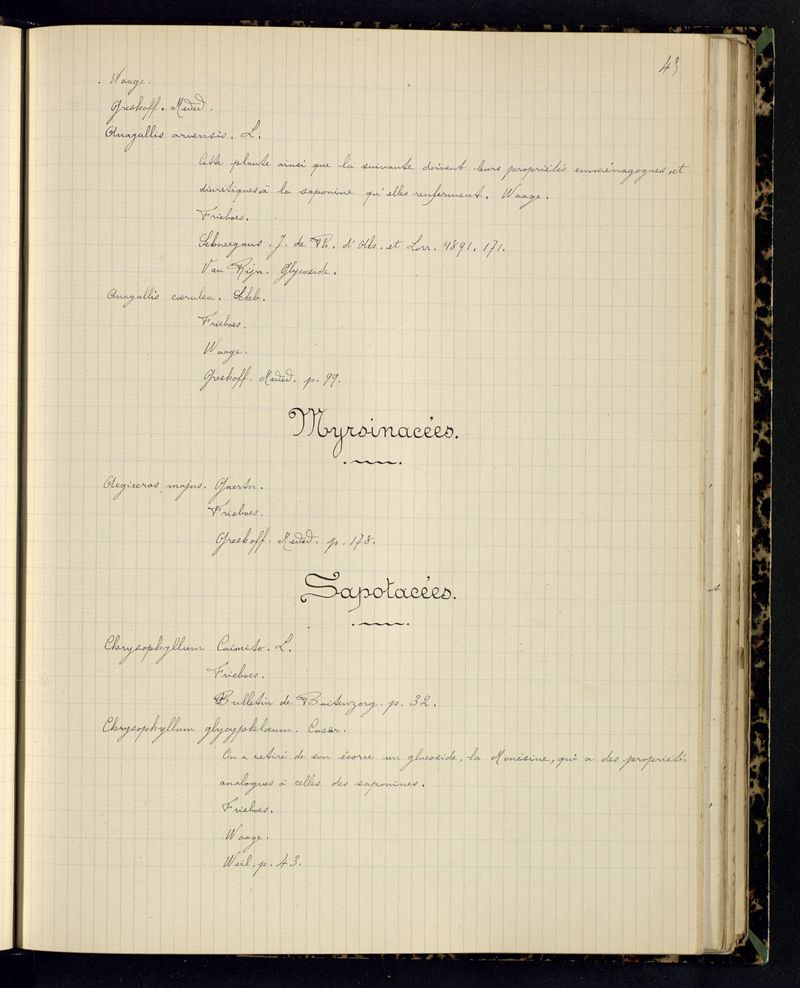 43
Waage.
Greshoff. Meded.
Anagallis arvensis. L.
Cette plante ainsi que la suivante doivent leurs propriétés emménagogues, et
diurétiques, à la saponine qu'elles renferment. Waage.
Frieboes.
Schneegans. J. de Ph. d'Als. et Lorr. 1891. 171.
Van Rijn. Glycoside.
Anagallis cœrulea. Schb.
Frieboes.
Waage.
Greshoff. Meded. p. 99.
Myrsinacées.
Aegiceras majus. Gaertn.
Frieboes.
Greshoff. Meded. p. 178.
Sapotacées.
Chrysophyllum Caimito. L.
Frieboes.
Bulletin de Buitenzorg. p. 32.
Chrysophyllum glycyphlœum. Casar.
On a retiré de son écorce un glucoside, la Monésine, qui a des propriétés
analogues à celles des saponines.
Frieboes.
Waage.
Weil. p. 43.